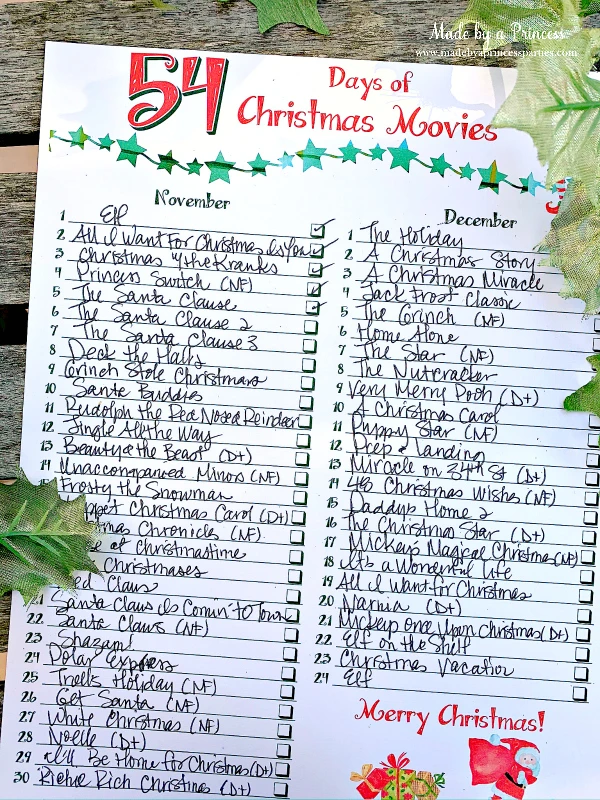 Made by a Princess
www.madebyaprincessparties.com
54 Days of
Christmas Movies
November
1 Elf
2 All I Want For Christmas Is You
3 Christmas w/the Kranks
4 Princess Switch (NF)
5 The Santa Clause
6 The Santa Clause 2
7 The Santa Clause 3
8 Deck the Halls
9 Grinch Stole Christmas
10 Santa Buddies
11 Rudolph the Red Nosed Reindeer
12 Jingle All the Way
13 Beauty & the Beast (D+)
14 Unaccompanied Minors (NF)
Frosty the Snowman
Christmas Carol (D+)
Chronicles (NF)
at Christmastime
Christmases
Claus
21 Santa Claus Is Comin' To Town
22 Santa Claus (NF)
23 Shazam!
24 Polar Express
25 Trolls Holiday (NF)
26 Get Santa (NF)
27 White Christmas (NF)
28 Noelle (D+)
29 I'll Be Home for Christmas (D+)
30 Richie Rich Christmas (D+)
December
1 The Holiday
2 A Christmas Story
3 A Christmas Miracle
4 Jack Frost Classic
5 The Grinch (NF)
6 Home Alone
7 The Star (NF)
8 The Nutcracker
9 Very Merry Pooh (D+)
10 A Christmas Carol
11 Puppy Star (NF)
12 Prep & Landing
13 Miracle on 34th St (D+)
14 48 Christmas Wishes (NF)
15 Daddys Home 2
16 The Christmas Star (D+)
17 Mickey's Magical Christmas (NF)
18 It's a Wonderful Life
19 All I Want for Christmas
20 Narnia (D+)
21 Mickey Once Upon Christmas (D+)
22 Elf on the Shelf
23 Christmas Vacation
24 Elf
Merry Christmas!